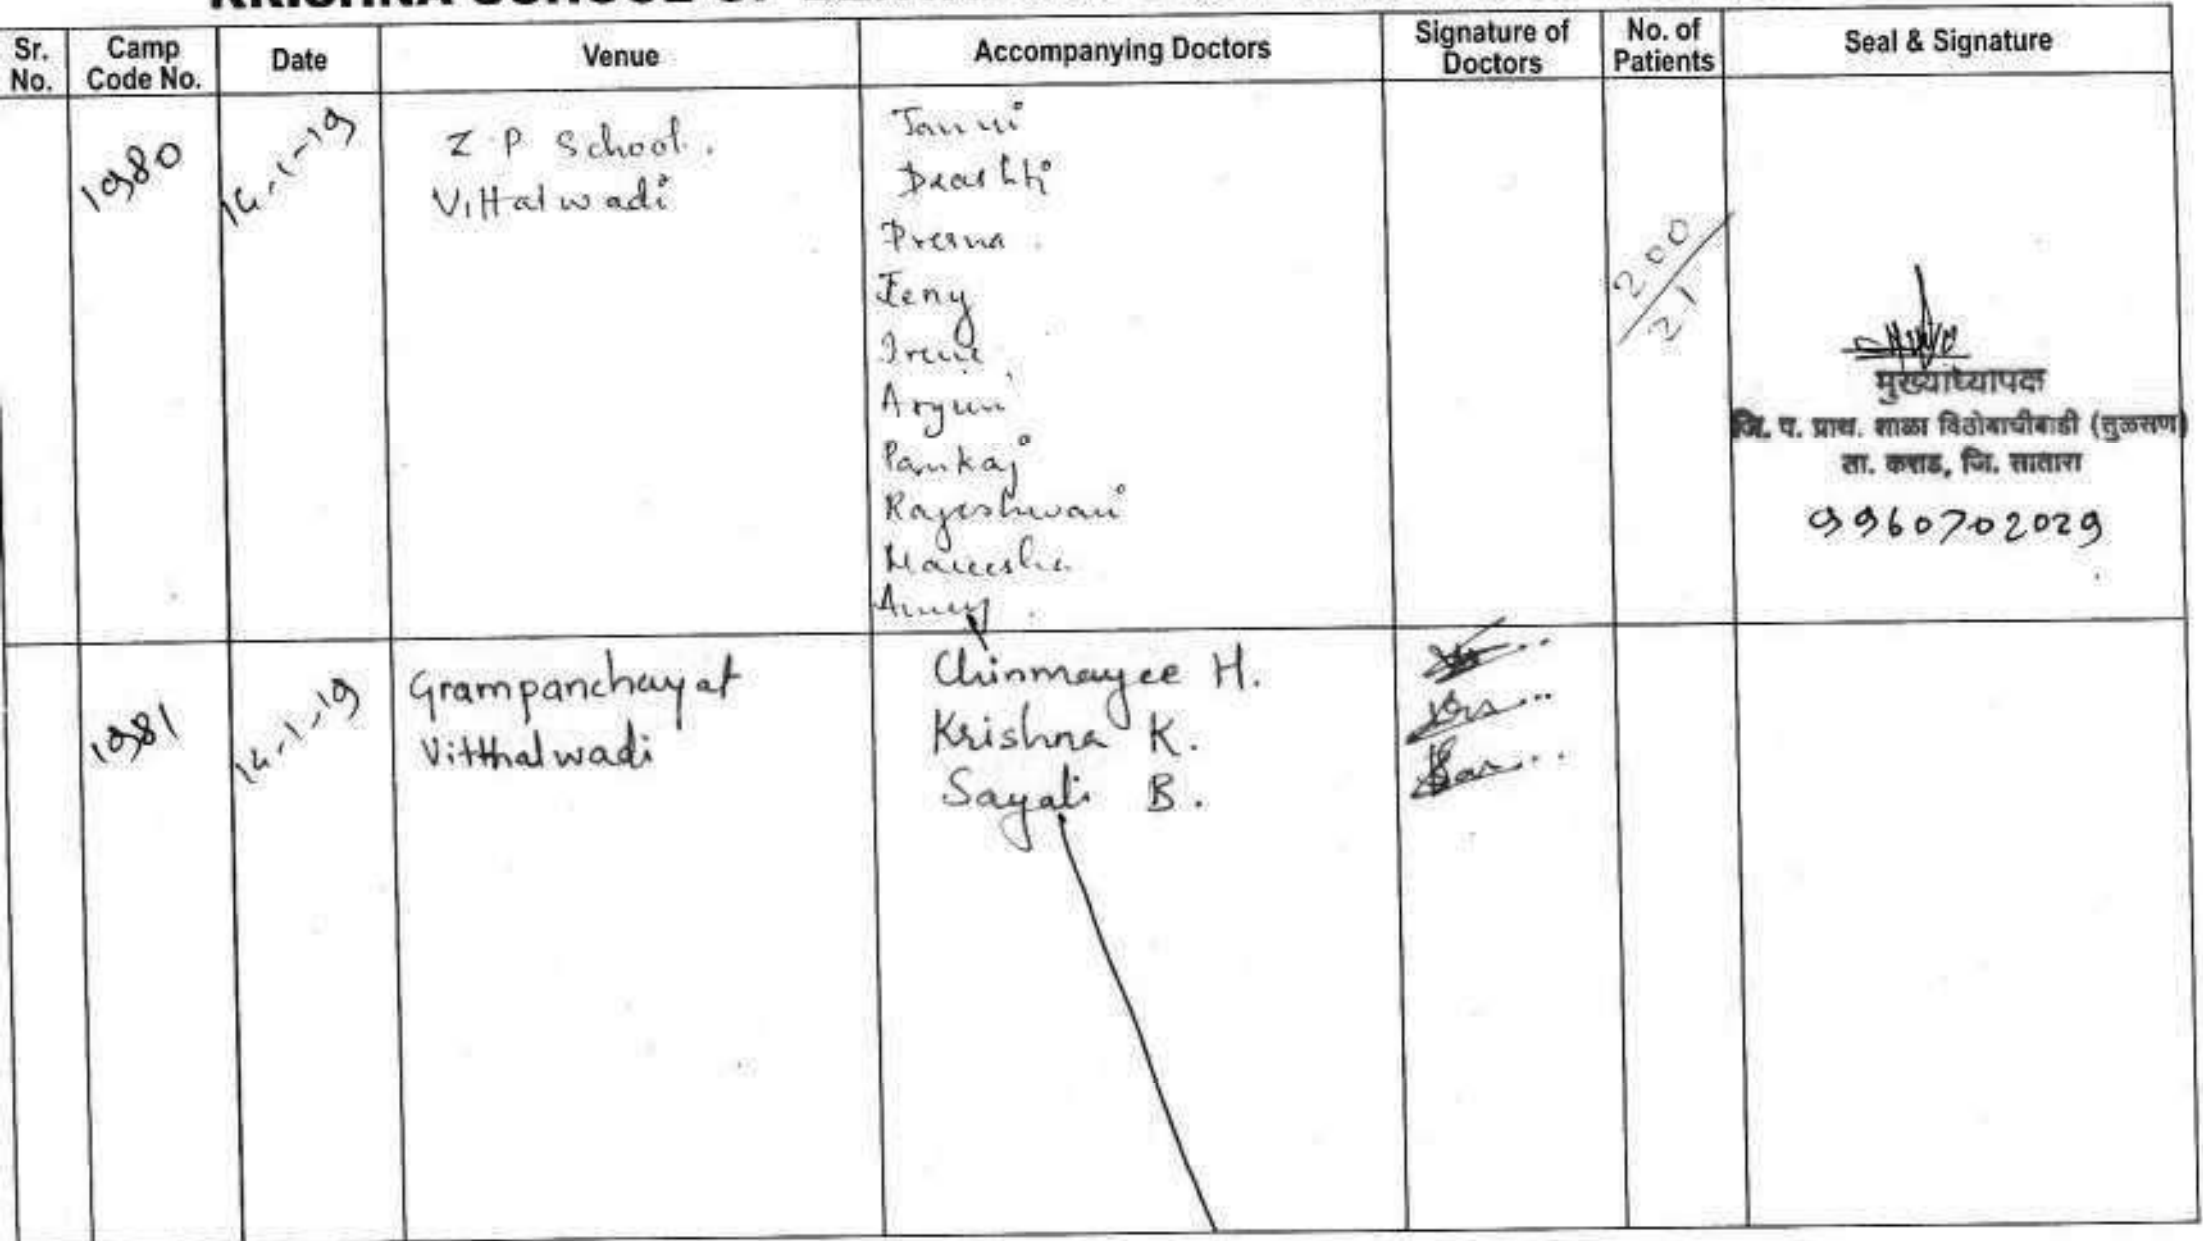 KRISHNA SCHOOL OF
Sr. No. Camp Code No. Date Venue Accompanying Doctors Signature of Doctors No. of Patients Seal & Signature
1980 14-1-19 Z.P School. Vittalwadi
Prerna
Jeny
Irene
Arjun
Pankaj
Rajeshwari
Maneesha
Amey
200/21
मुख्याध्यापक
जि. प. प्राथ. शाळा विठोबाचीवाडी (तुळसण)
ता. कराड, जि. सातारा
9960702029
1981 14-1-19 Grampanchayat Vitthalwadi
Chinmayee H.
Krishna K.
Sayali B.